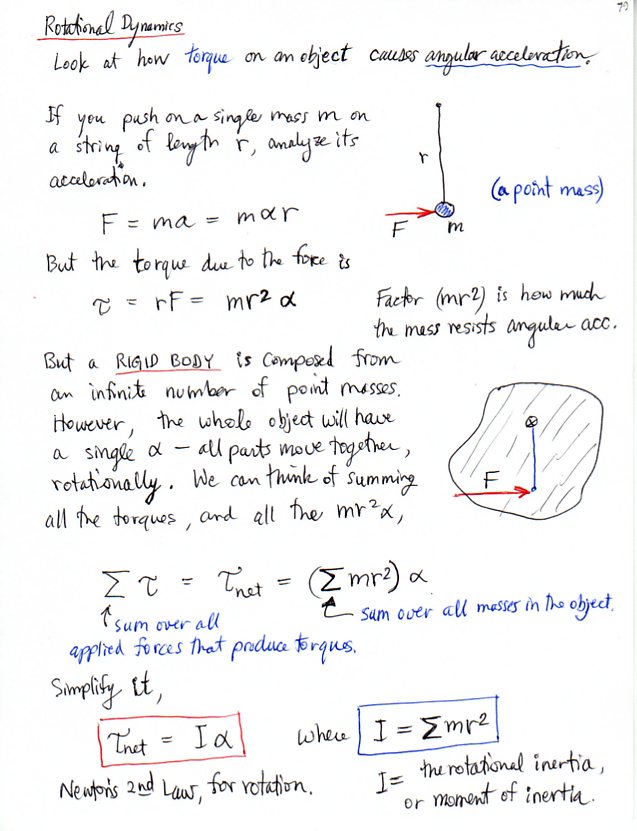 79
Rotational Dynamics
Look at how torque on an object causes angular acceleration.
If you push on a single mass m on
a string of length r, analyze its
acceleration.
r
(a point mass)
F
m
F = ma = mαr
But the torque due to the force is
τ = rF = mr² α
Factor (mr²) is how much
the mass resists angular acc.
But a RIGID BODY is composed from
an infinite number of point masses.
However, the whole object will have
a single α – all parts move together,
rotationally. We can think of summing
all the torques, and all the mr²α,
F
Σ τ = τnet = (Σ mr²) α
sum over all
applied forces that produce torques.
sum over all masses in the object.
Simplify it,
τnet = I α where I = Σmr²
Newton's 2nd Law, for rotation.
I = the rotational inertia,
or moment of inertia.